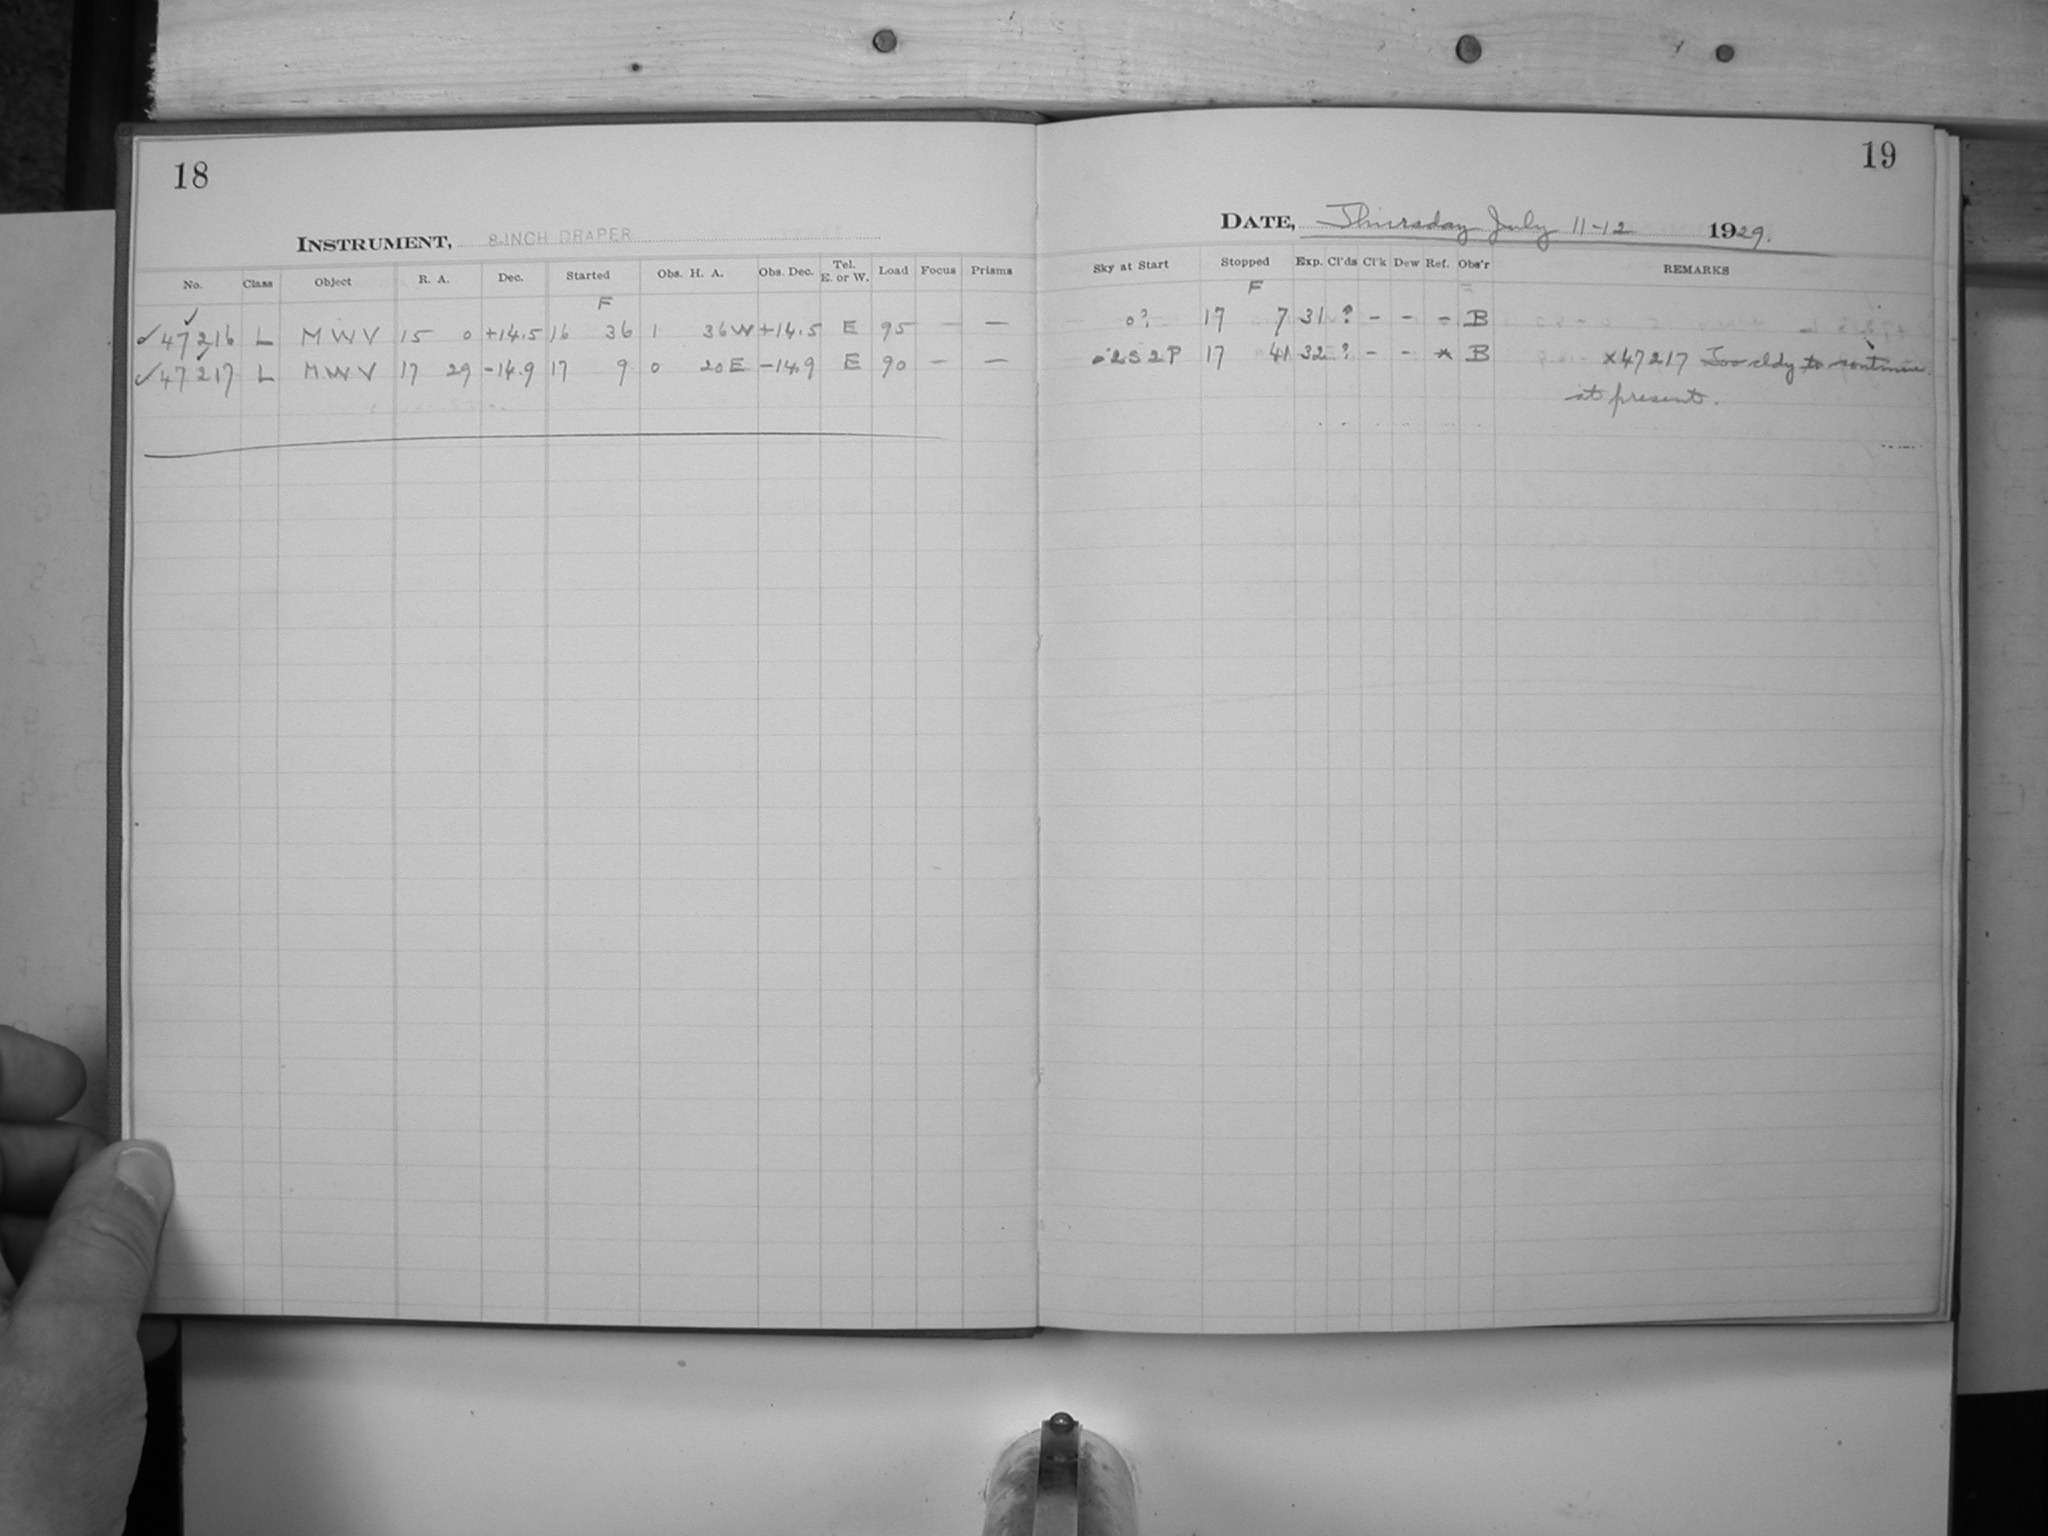 18
INSTRUMENT, 8-INCH DRAPER
No. Class Object R. A. Dec. Started Obs. H. A. Obs. Dec. Tel. E. or W. Load Focus Prisms
F
✓47216 L MWV 15 0 +14.5 16 36 1 36W +14.5 E 95 — —
✓47217 L MWV 17 29 -14.9 17 9 0 20E -14.9 E 90 — —
19
DATE, Thursday July 11-12 1929.
Sky at Start Stopped Exp. Cl'ds Cl'k Dew Ref. Obs'r REMARKS
F
0? 17 7 31 ? - - - B
2S2P 17 41 32 ? - - * B x47217 Too cldy to continue
at present.